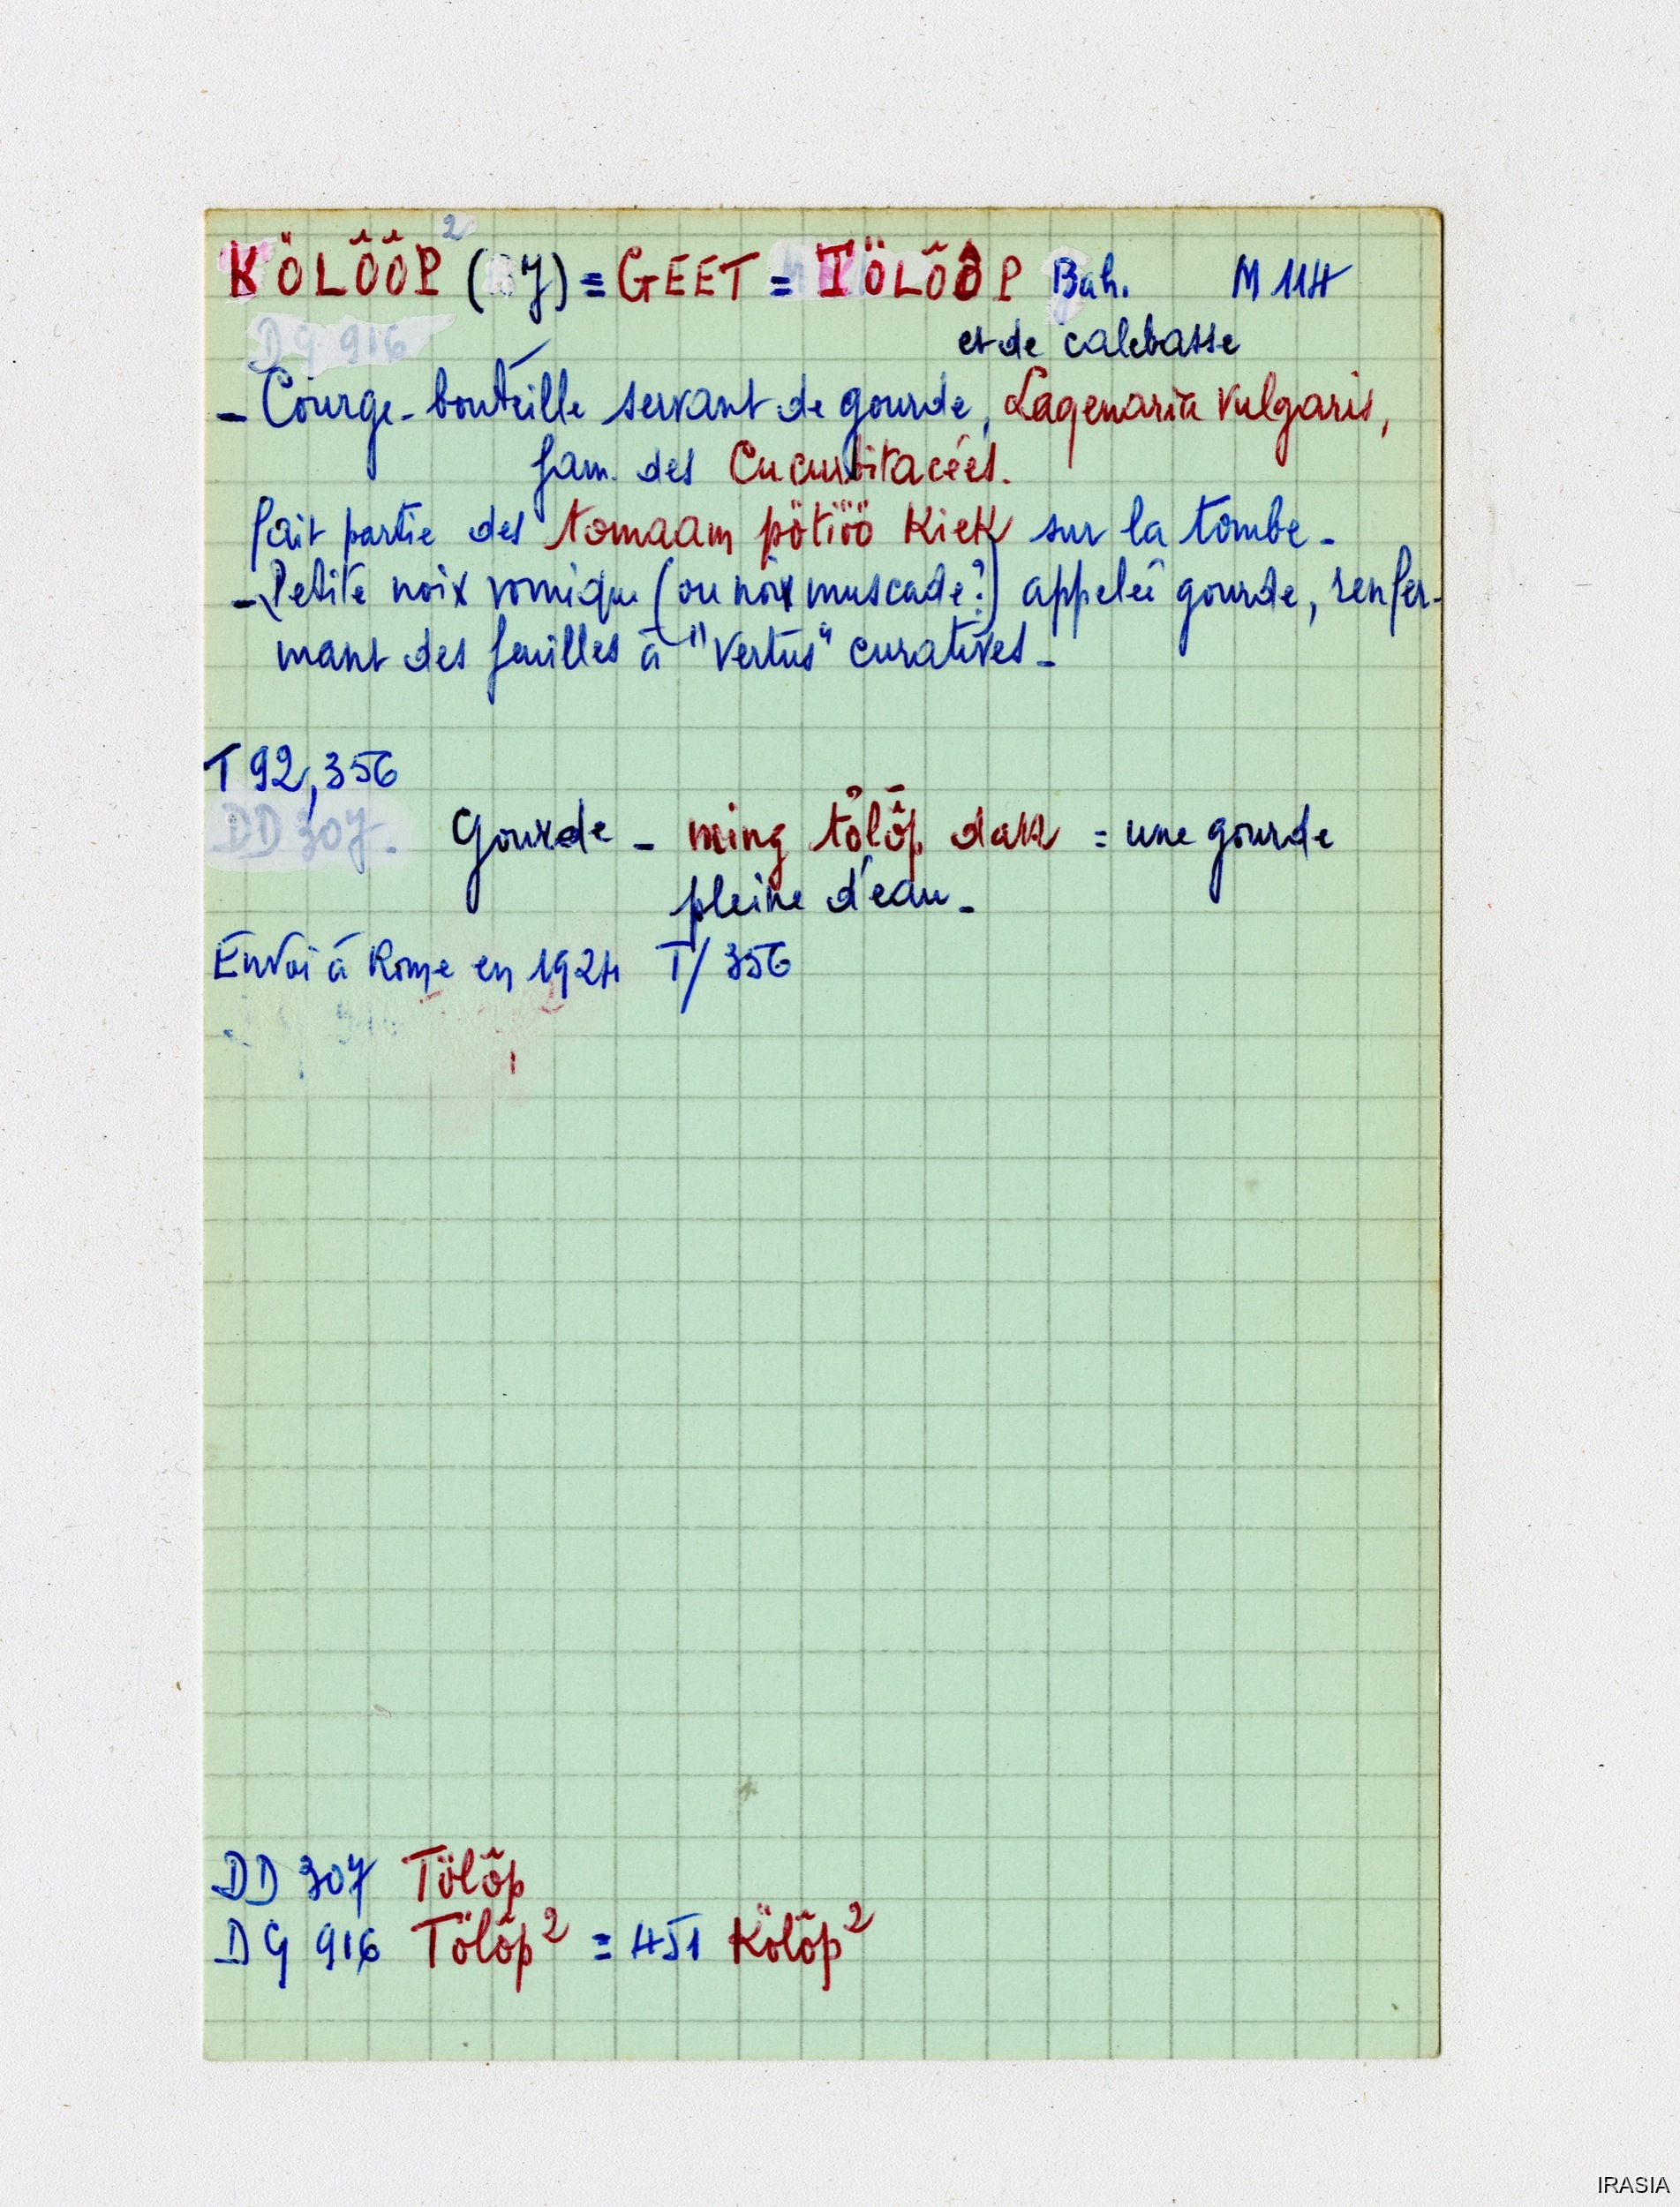 KÖLÔÔP² (J) = GEET = TÖLÔÔP Bah. M 114
DG 916
et de calebasse
- Courge-bouteille servant de gourde, Lagenaria vulgaris,
fam. des Cucurbitacées.
fait partie des tomaam pötiöö Kiek sur la tombe -
- Petite noix vomique (ou noix muscade?) appelée gourde, renfer-
mant des feuilles à "vertus" curatives -
T 92, 356
DD 307. Gourde - ming tölôp dak = une gourde
pleine d'eau -
Envoi à Rome en 1924 T/ 356
DD 307 Tölôp
DG 916 Tölôp² = 451 Kölôp²
IRASIA